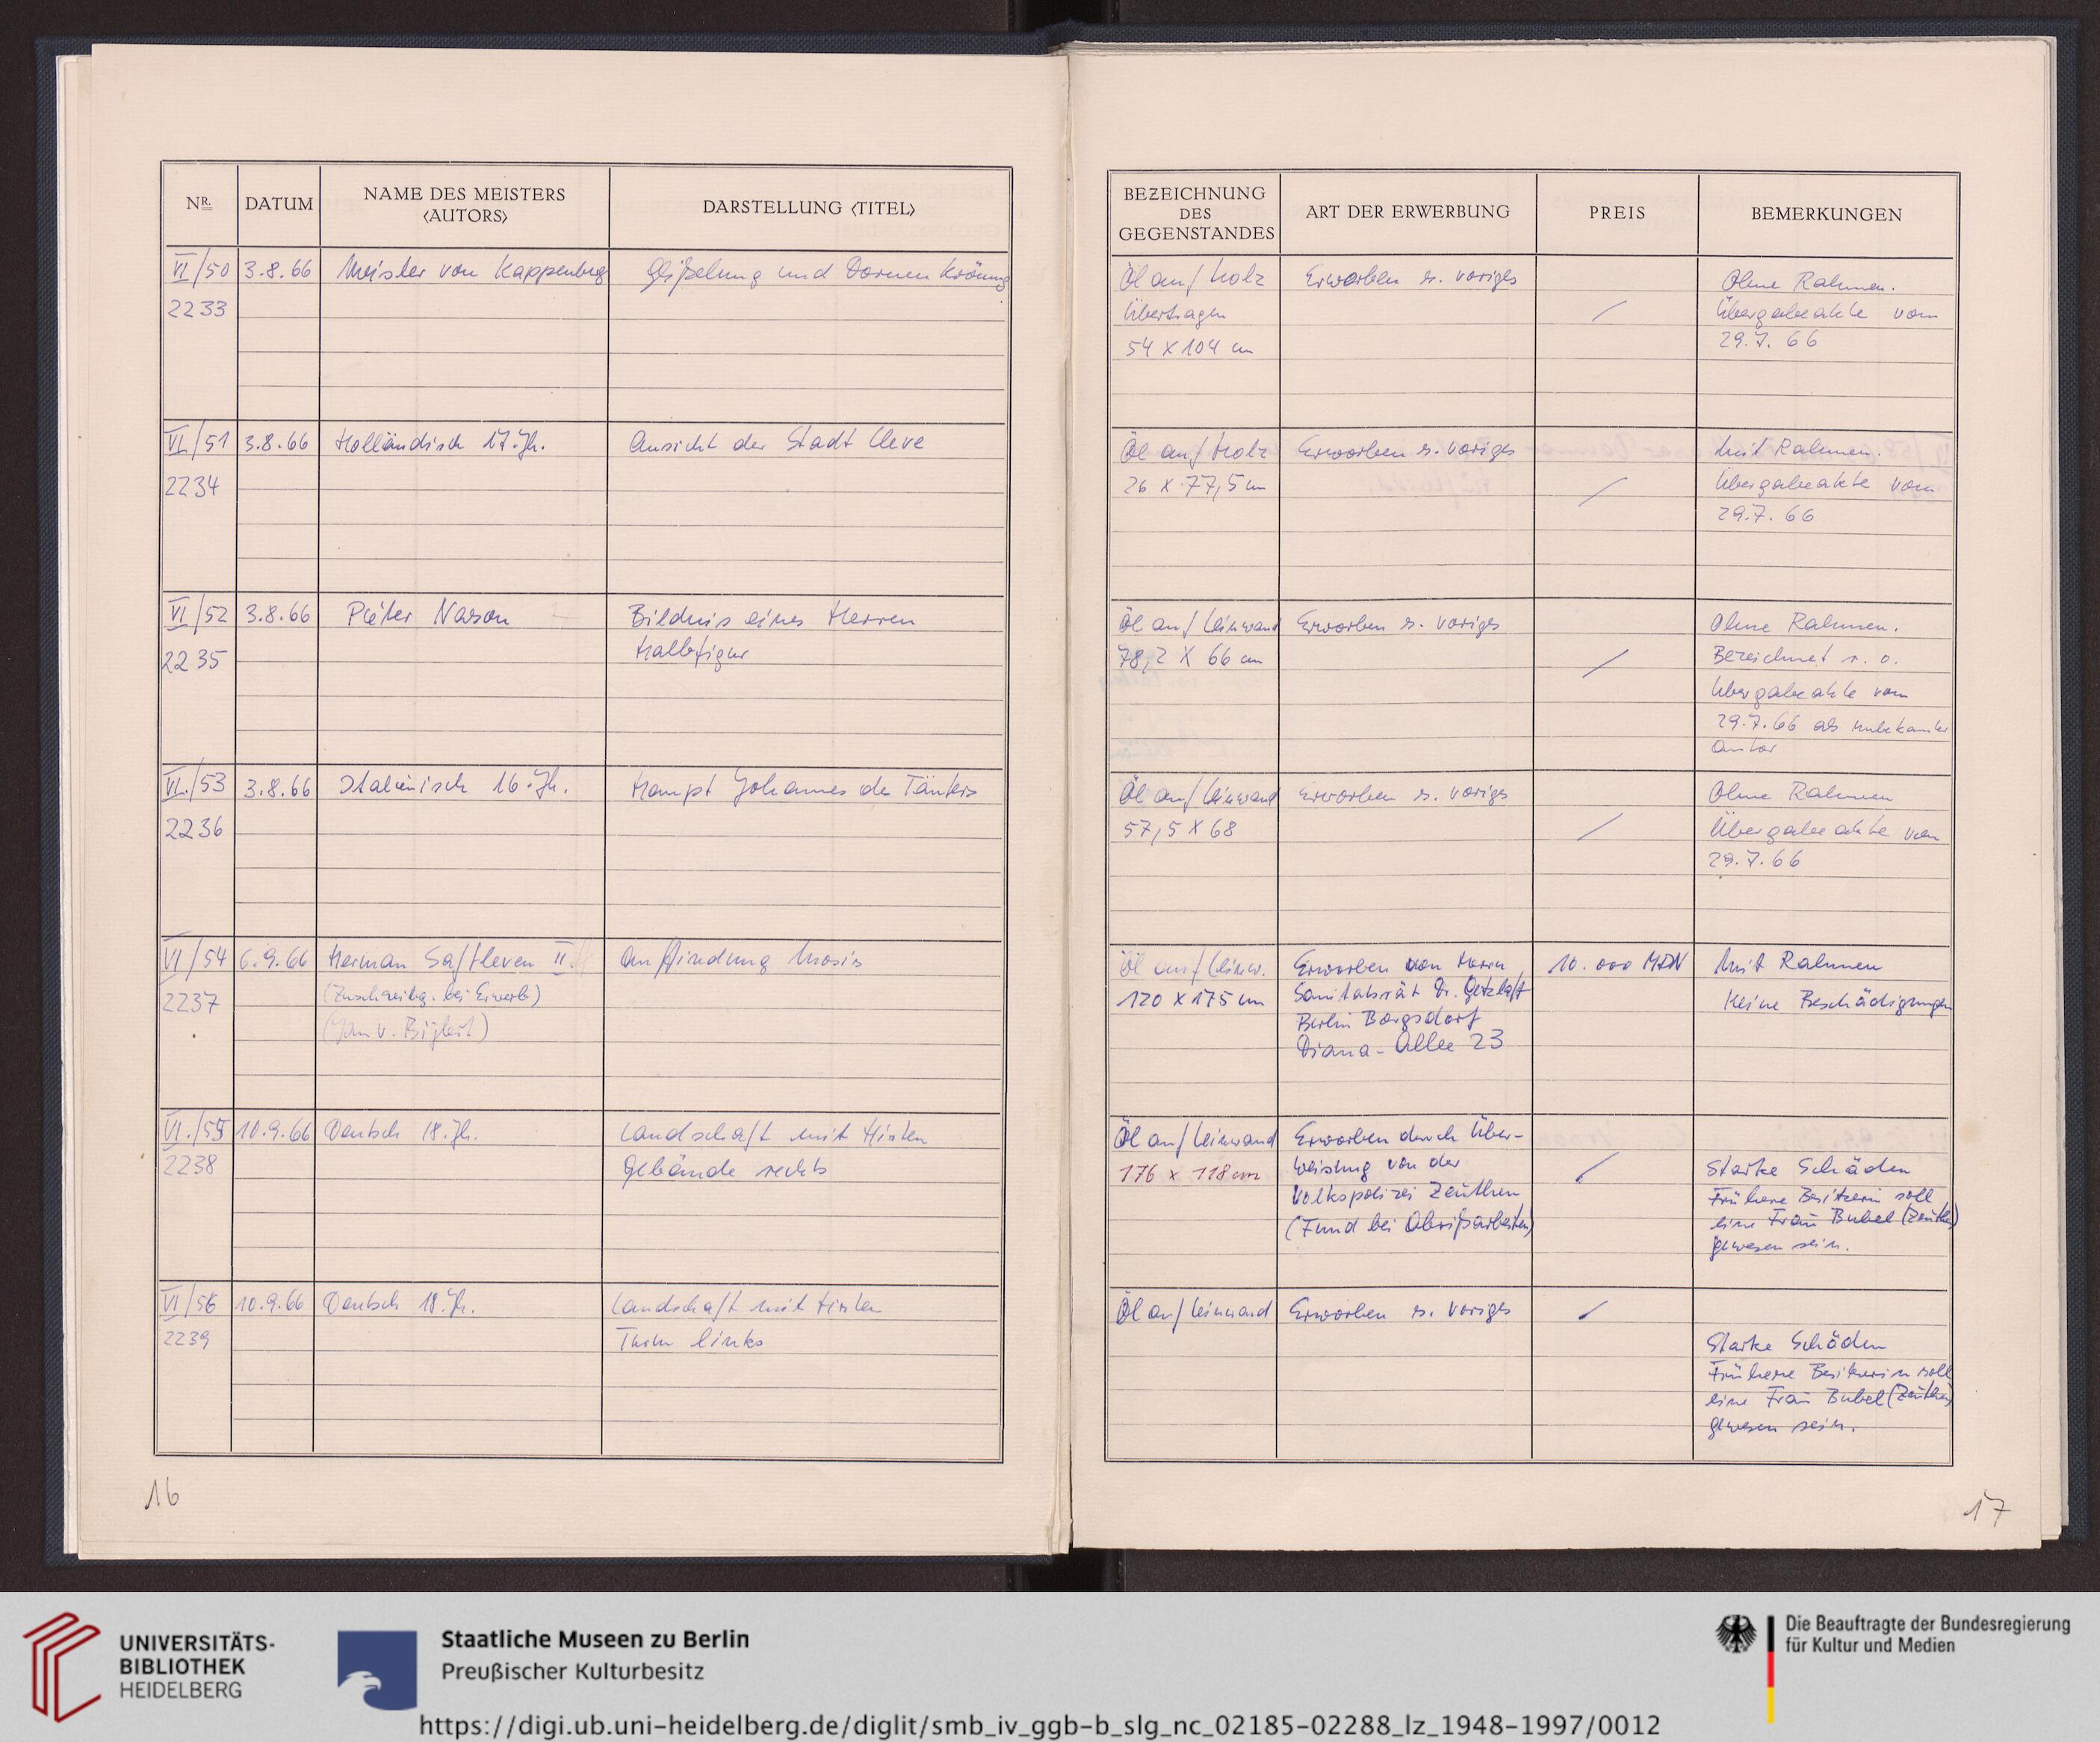 NR.
DATUM
NAME DES MEISTERS
<AUTORS>
DARSTELLUNG <TITEL>
VI/50
2233
3.8.66
Meister von Kappenberg
Geißelung und Dornenkrönung
VI/51
2234
3.8.66
Holländisch 17. Jh.
Ansicht der Stadt Cleve
VI/52
2235
3.8.66
Pieter Nason
Bildnis eines Herren
Halbfigur
VI./53
2236
3.8.66
Italienisch 16. Jh.
Haupt Johannes des Täufers
VI/54
2237
6.9.66
Herman Saftleven II.
(Zuschreibg. bei Erwerb)
(Jan v. Bijlert)
Auffindung Mosis
VI./55
2238
10.9.66
Deutsch 18. Jh.
Landschaft mit Hirten
Gebäude rechts
VI/56
2239
10.9.66
Deutsch 18. Jh.
Landschaft mit Hirten
Turm links
16
BEZEICHNUNG
DES
GEGENSTANDES
ART DER ERWERBUNG
PREIS
BEMERKUNGEN
Öl auf Holz
Übertragen
54 X 104 cm
Erworben s. voriges
/
Ohne Rahmen.
Übergabeakte vom
29.7.66
Öl auf Holz
26 X 77,5 cm
Erworben s. voriges
/
Mit Rahmen.
Übergabeakte vom
29.7.66
Öl auf Leinwand
78,2 X 66 cm
Erworben s. voriges
/
Ohne Rahmen.
Bezeichnet r. o.
Übergabeakte vom
29.7.66 als unbekannter
Autor
Öl auf Leinwand
57,5 X 68
Erworben s. voriges
/
Ohne Rahmen
Übergabeakte vom
29.7.66
Öl auf Leinw.
120 X 175 cm
Erworben von Herrn
Sanitätsrat Dr.
Berlin Borgsdorf
Diana-Allee 23
10.000 MDN
Mit Rahmen
Keine Beschädigungen
Öl auf Leinwand
176 x 118 cm
Erworben durch Über-
weisung von der
Volkspolizei Zeuthen
(Fund bei Abrißarbeiten)
/
Starke Schäden
Frühere Besitzerin soll
eine Frau Bubel (Zeuthen)
gewesen sein.
Öl auf Leinwand
Erworben s. voriges
/
Starke Schäden
Frühere Besitzerin soll
eine Frau Bubel (Zeuthen)
gewesen sein.
17
UNIVERSITÄTS-
BIBLIOTHEK
HEIDELBERG
Staatliche Museen zu Berlin
Preußischer Kulturbesitz
Die Beauftragte der Bundesregierung
für Kultur und Medien
https://digi.ub.uni-heidelberg.de/diglit/smb_iv_ggb-b_slg_nc_02185-02288_lz_1948-1997/0012